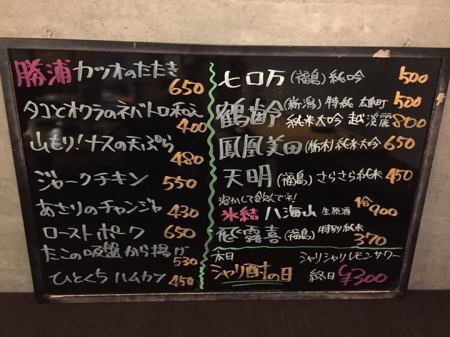 勝浦 カツオのたたき 650
タコとオクラのネバトロ和え 400
山もり!ナスの天ぷら 480
ジャークチキン 550
あさりのチャンジャ 430
ローストポーク 650
たこの吸盤から揚げ 530
ひとくちハムカツ 450
七ロ万(福島)純吟 500
鶴齢(新潟)特純 雄町 500
純米大吟 越淡麗 800
鳳凰美田(栃木)純米大吟 650
天明(福島)さらさら純米 450
溶かして飲んでネ!
氷結 八海山 生原酒 1合900
(福島)特別純米 370
本日 シャリシャリレモンサワー
シャリ酎の日 終日 ¥300